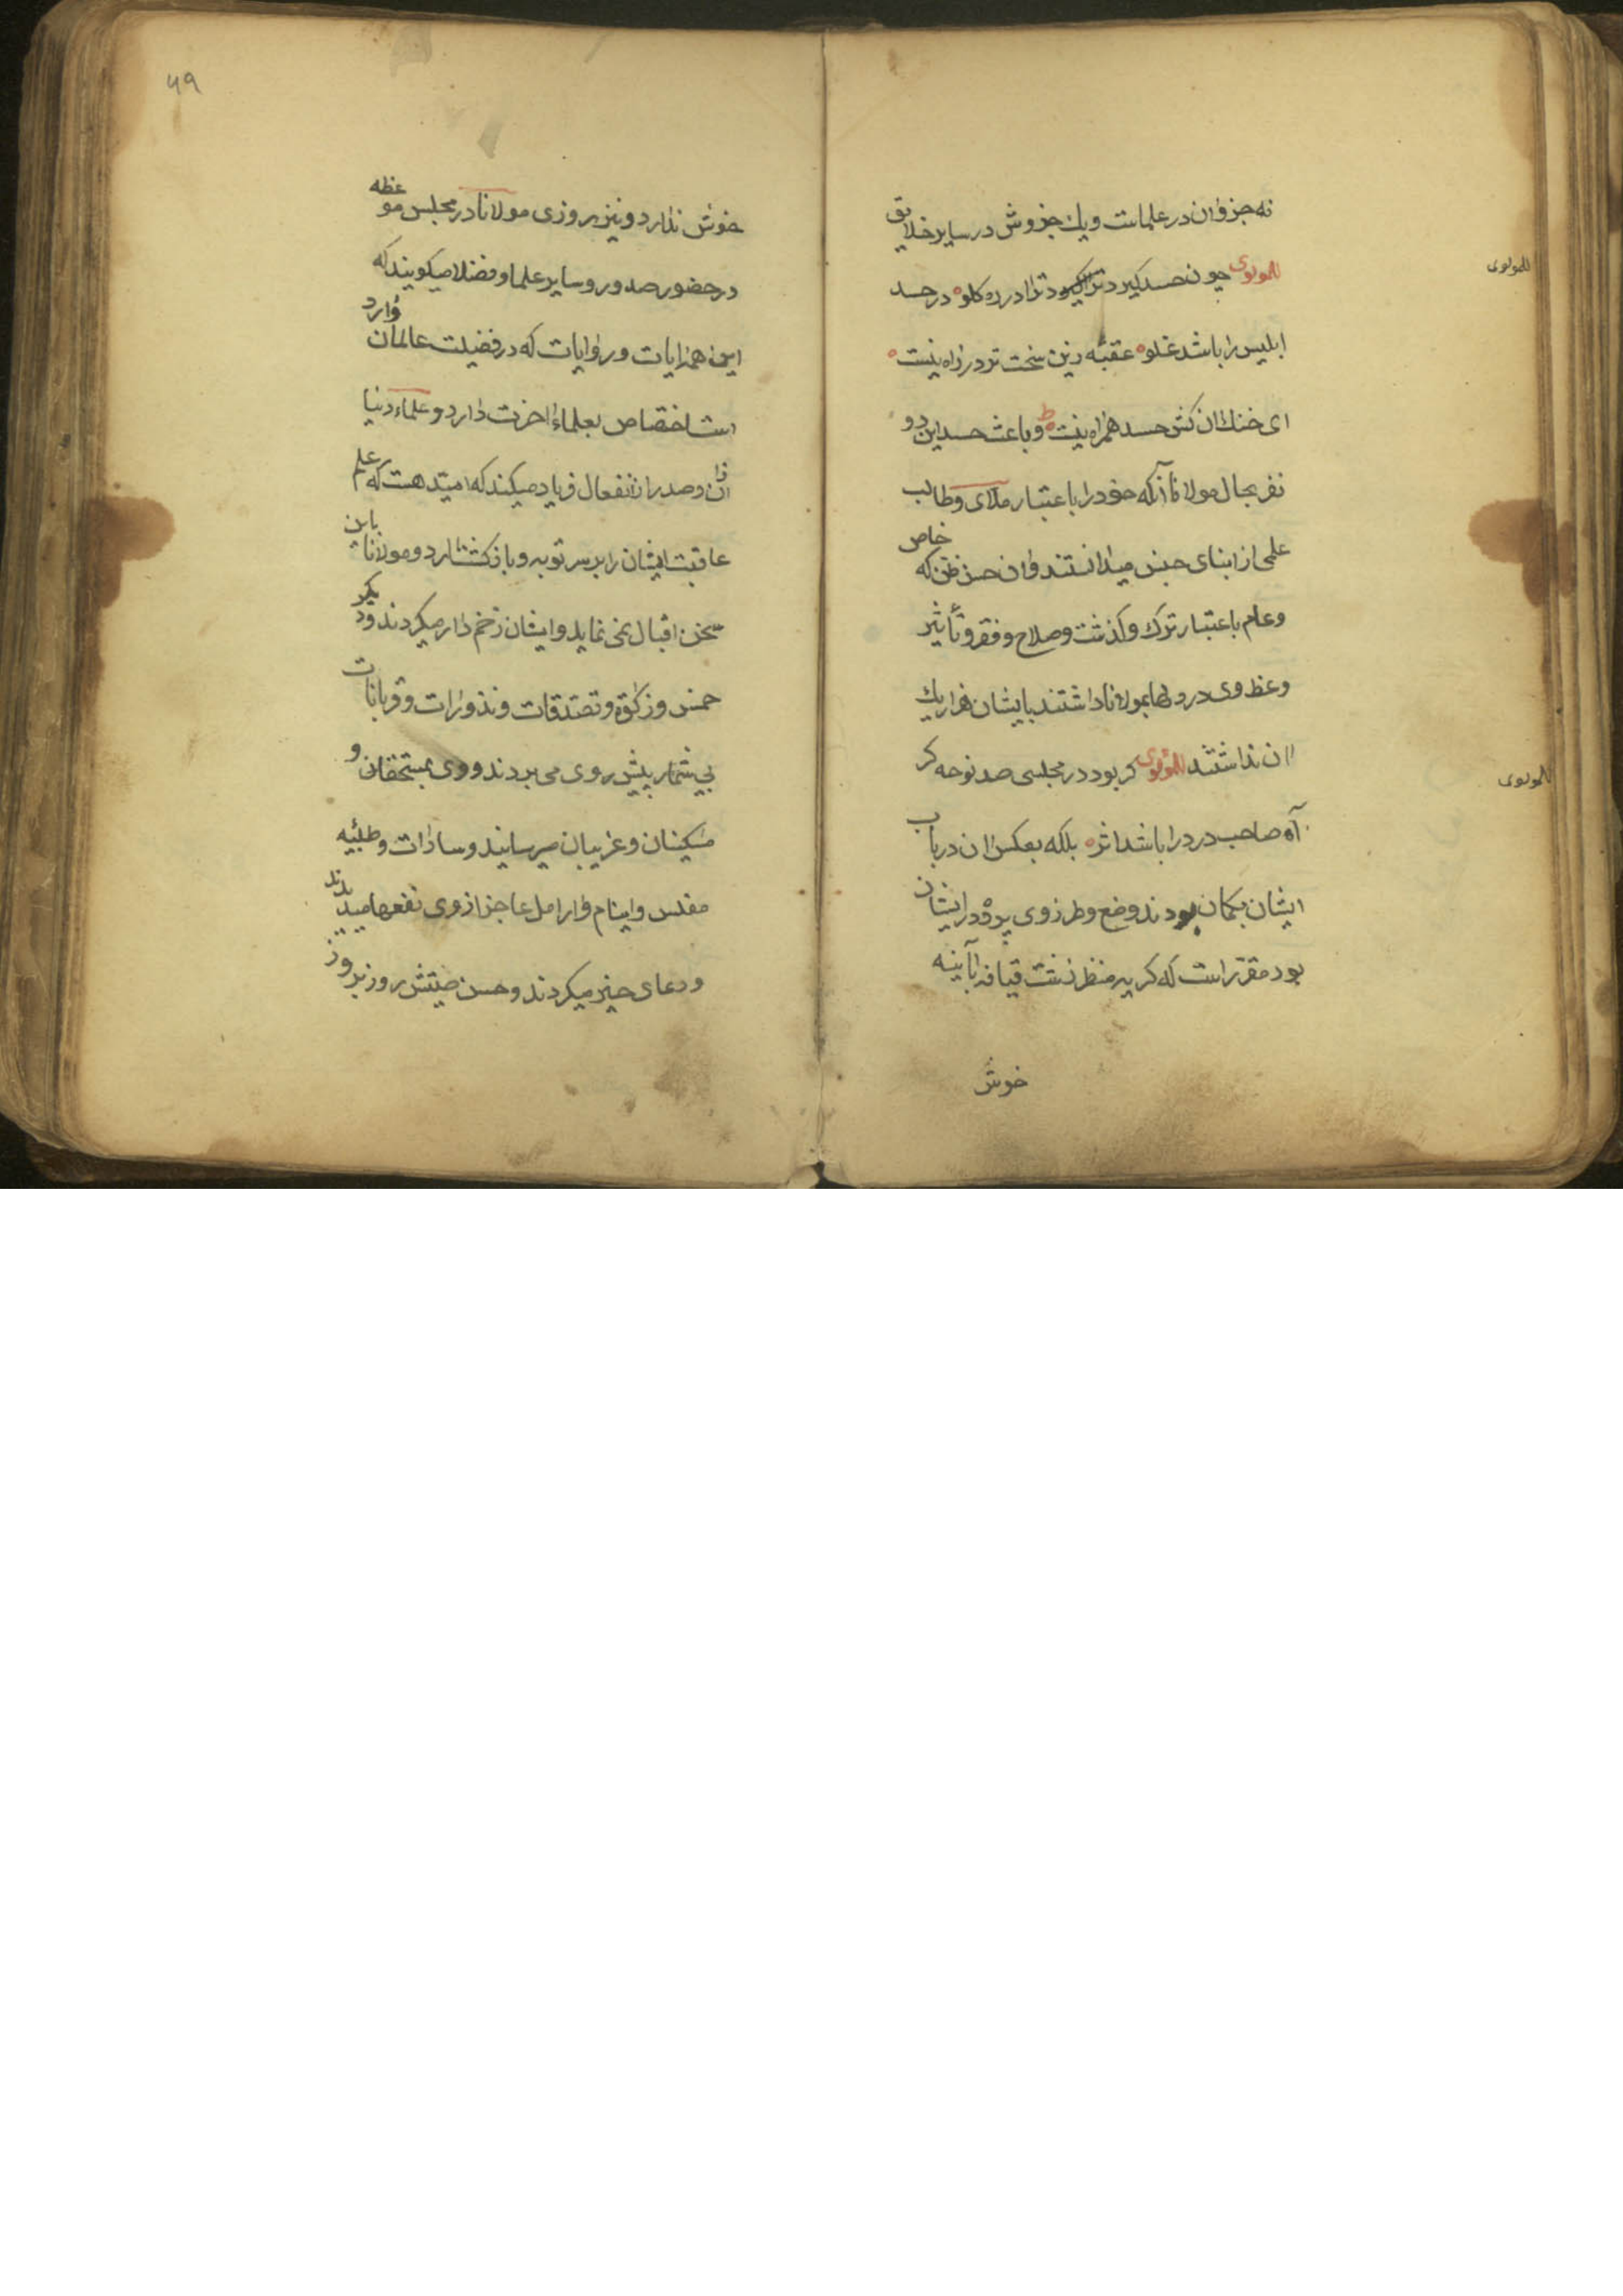 نه جزو ان در علماست ویك جزوش در سایر خلایق
للمولوی چون حسد کیرد ترا در ره کلو در حسد
للمولوی
ابلیس را باشد غلو عقبهٔ زین سخت تر در راه نیست
ای خنك ان کش حسد همراه نیست و باعث حسد این دو
نفر بحال مولانا آنکه خود را باعتبار ملای و طالب
علمی از ابنای جنس میدانستند و ان حسن ظن که خاص
وعام باعتبار ترك و کذشت وصلاح و فقر و تأثیر
وعظ وی در دلها بمولانا داشتند بایشان هزار یك
ان نداشتند للمولوی کر بود در مجلسی صد نوحه کر
للمولوی
آه صاحب درد را باشد اثر بلکه بعکس ان در باب
ایشان بکمان بودند وضع و طرز وی پرده در ایشان
بود مقرر است که کریه منظر زشت قیافه را آینه
خوش
۴۹
خوش ندارد و نیز روزی مولانا در مجلس موعظه
در حضور صدور و سایر علما و فضلا میکویند که
این همه ایات و روایات که در فضیلت عالمان وارد
است اختصاص بعلماء اخرت دارد و علماء دنیا
ازان و صدر از انفعال فریاد میکند که امید هست که علم
عاقبت ایشان را بر سر توبه و بازکشت ارد و مولانا باین
سخن اقبال نمی نماید و ایشان زخم دار میکردند و دیکر
خمس و زکوة و تصدقات و نذورات و قربانات
بی شمار پیش وی می بردند و وی بمستحقان و
مسکینان و غریبان میرسانید و سادات و طلبئه
مفلس و ایتام و ارامل عاجز از وی نفعها میدیدند
و دعای خیر میکردند و حسن صیتش روز بروز